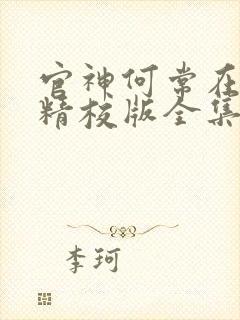 官神何常在
精校版全集
李珂